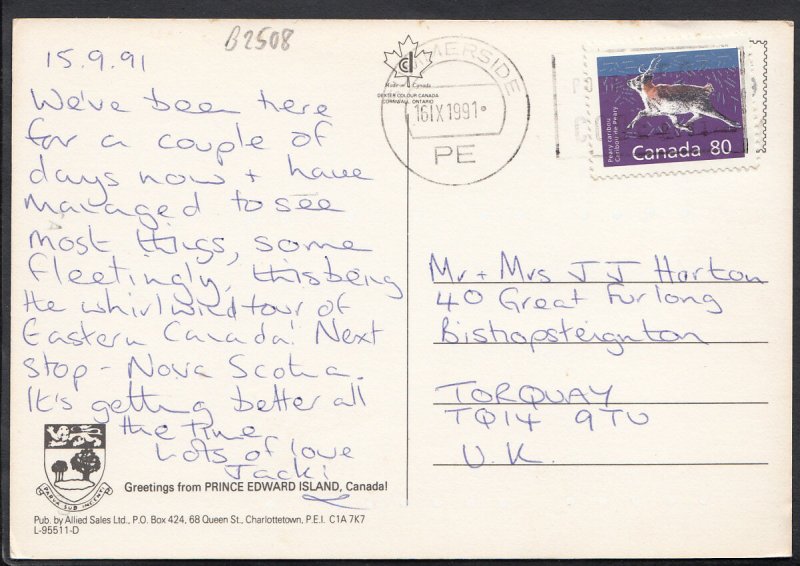 B2508
15.9.91
We've been here
for a couple of
days now + have
managed to see
most things, some
fleetingly, this being
the whirlwind tour of
Eastern Canada! Next
stop - Nova Scotia.
It's getting better all
the time
Lots of love
Jacki
PARVA SUB INGENTI
Greetings from PRINCE EDWARD ISLAND, Canada!
Pub. by Allied Sales Ltd., P.O. Box 424, 68 Queen St., Charlottetown, P.E.I. C1A 7K7
L-95511-D
Made in Canada
DEXTER COLOUR CANADA
CORNWALL, ONTARIO
MERSIDE
16 IX 1991
PE
Peary caribou
Caribou de Peary
Canada 80
Mr + Mrs J J Horton
40 Great Furlong
Bishopsteignton
TORQUAY
TQ14 9TU
U.K.